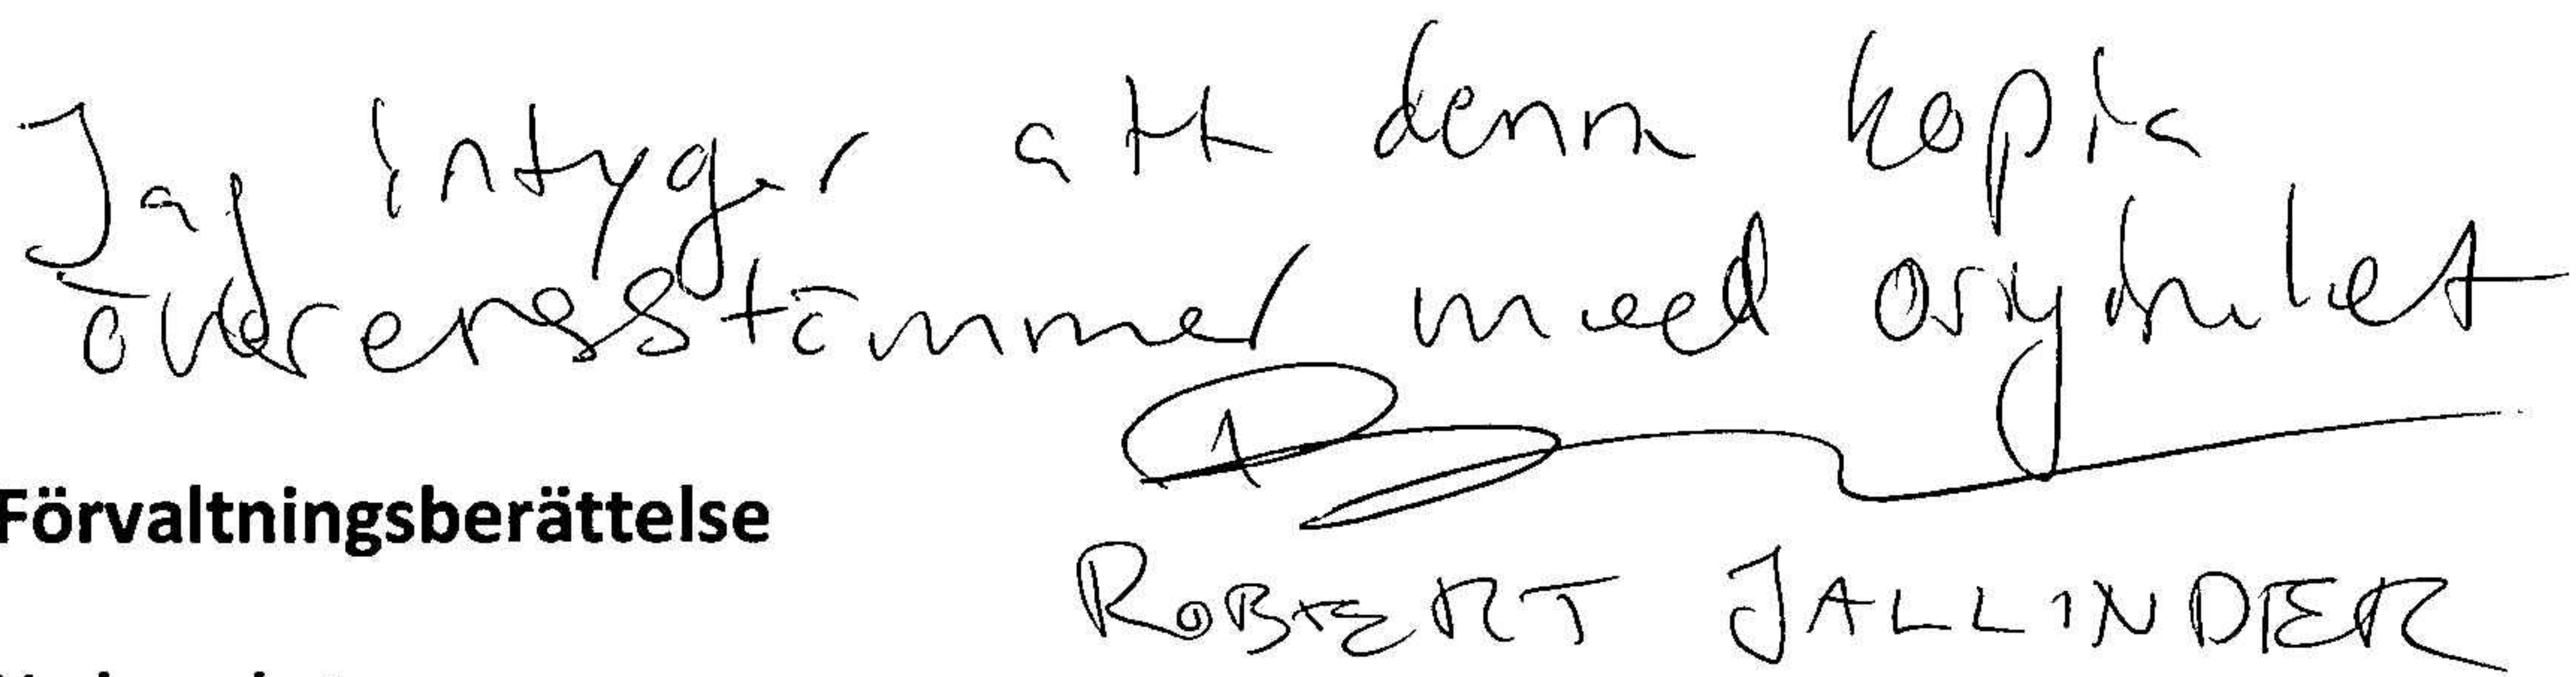 Jag intygar att denna kopia
överensstämmer med originalet
Förvaltningsberättelse
ROBERT JALLINDER